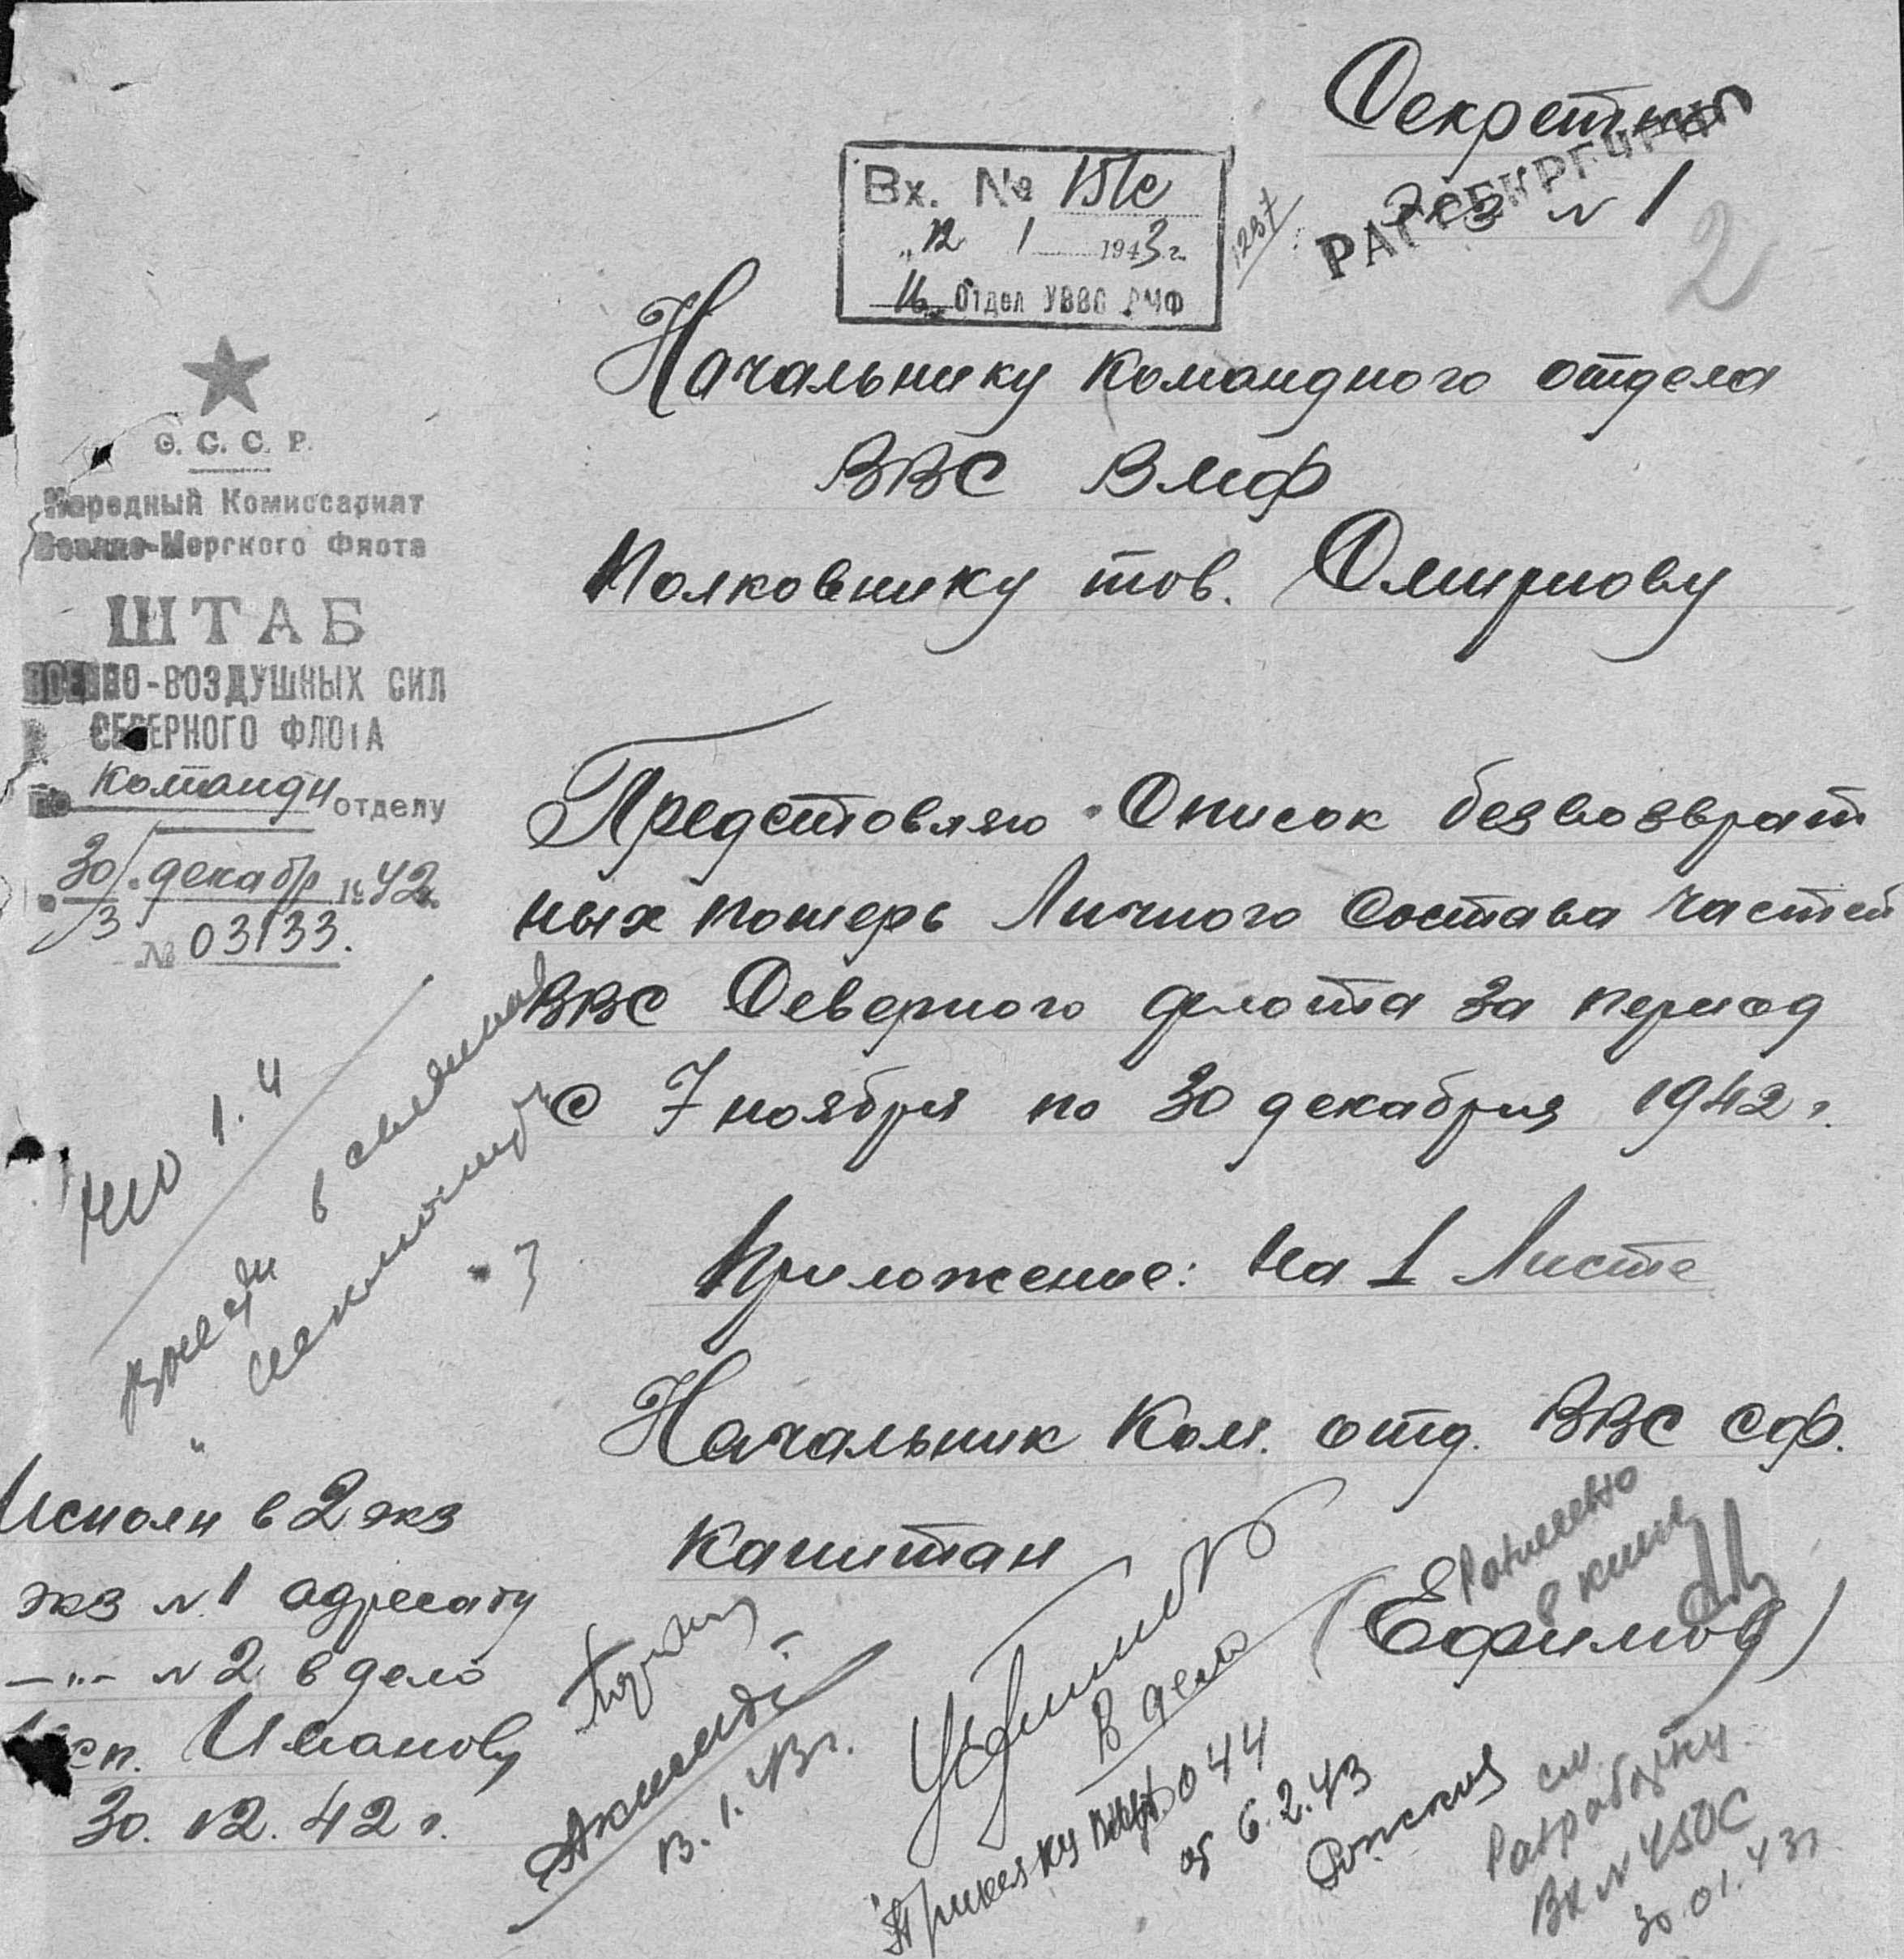 Секретно
Экз № 1
РАССЕКРЕЧЕНО
2
Вх. № 151с
"12 1 1943 г.
Отдел УВВС ВМФ
Начальнику Командного отдела
ВВС ВМФ
Полковнику тов. Смирнову
С. С. С. Р.
Народный Комиссариат
Военно-Морского Флота
ШТАБ
ВОЕННО-ВОЗДУШНЫХ СИЛ
СЕВЕРНОГО ФЛОТА
по Командн отделу
30/ декабр 1942
№ 03133.
Представляю Список безвозврат
ных потерь Личного Состава частей
ВВС Северного флота за период
с 7 ноября по 30 декабря 1942 г.
Приложение: На 1 Листе
Начальник Ком. отд. ВВС СФ.
Капитан
(Ефимов)
Исполн в 2 экз
экз № 1 адресату
—"— № 2 в дело
Исп. Иванову
30. 12. 42 г.
13. 1. 43 г.
В дело
044
от 6.2.43
см.
Разработку
Вх № 450с
30.01.43г